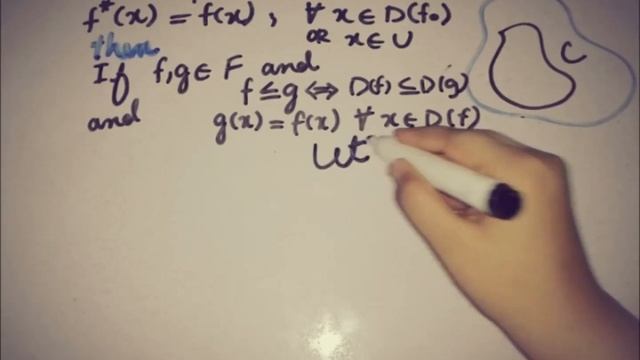 f*(x) = f(x), ∀ x ∈ D(f₀)
OR x ∈ U
then
If f, g ∈ F and
f ≤ g ⇔ D(f) ⊆ D(g)
and g(x) = f(x) ∀ x ∈ D(f)
Let
C